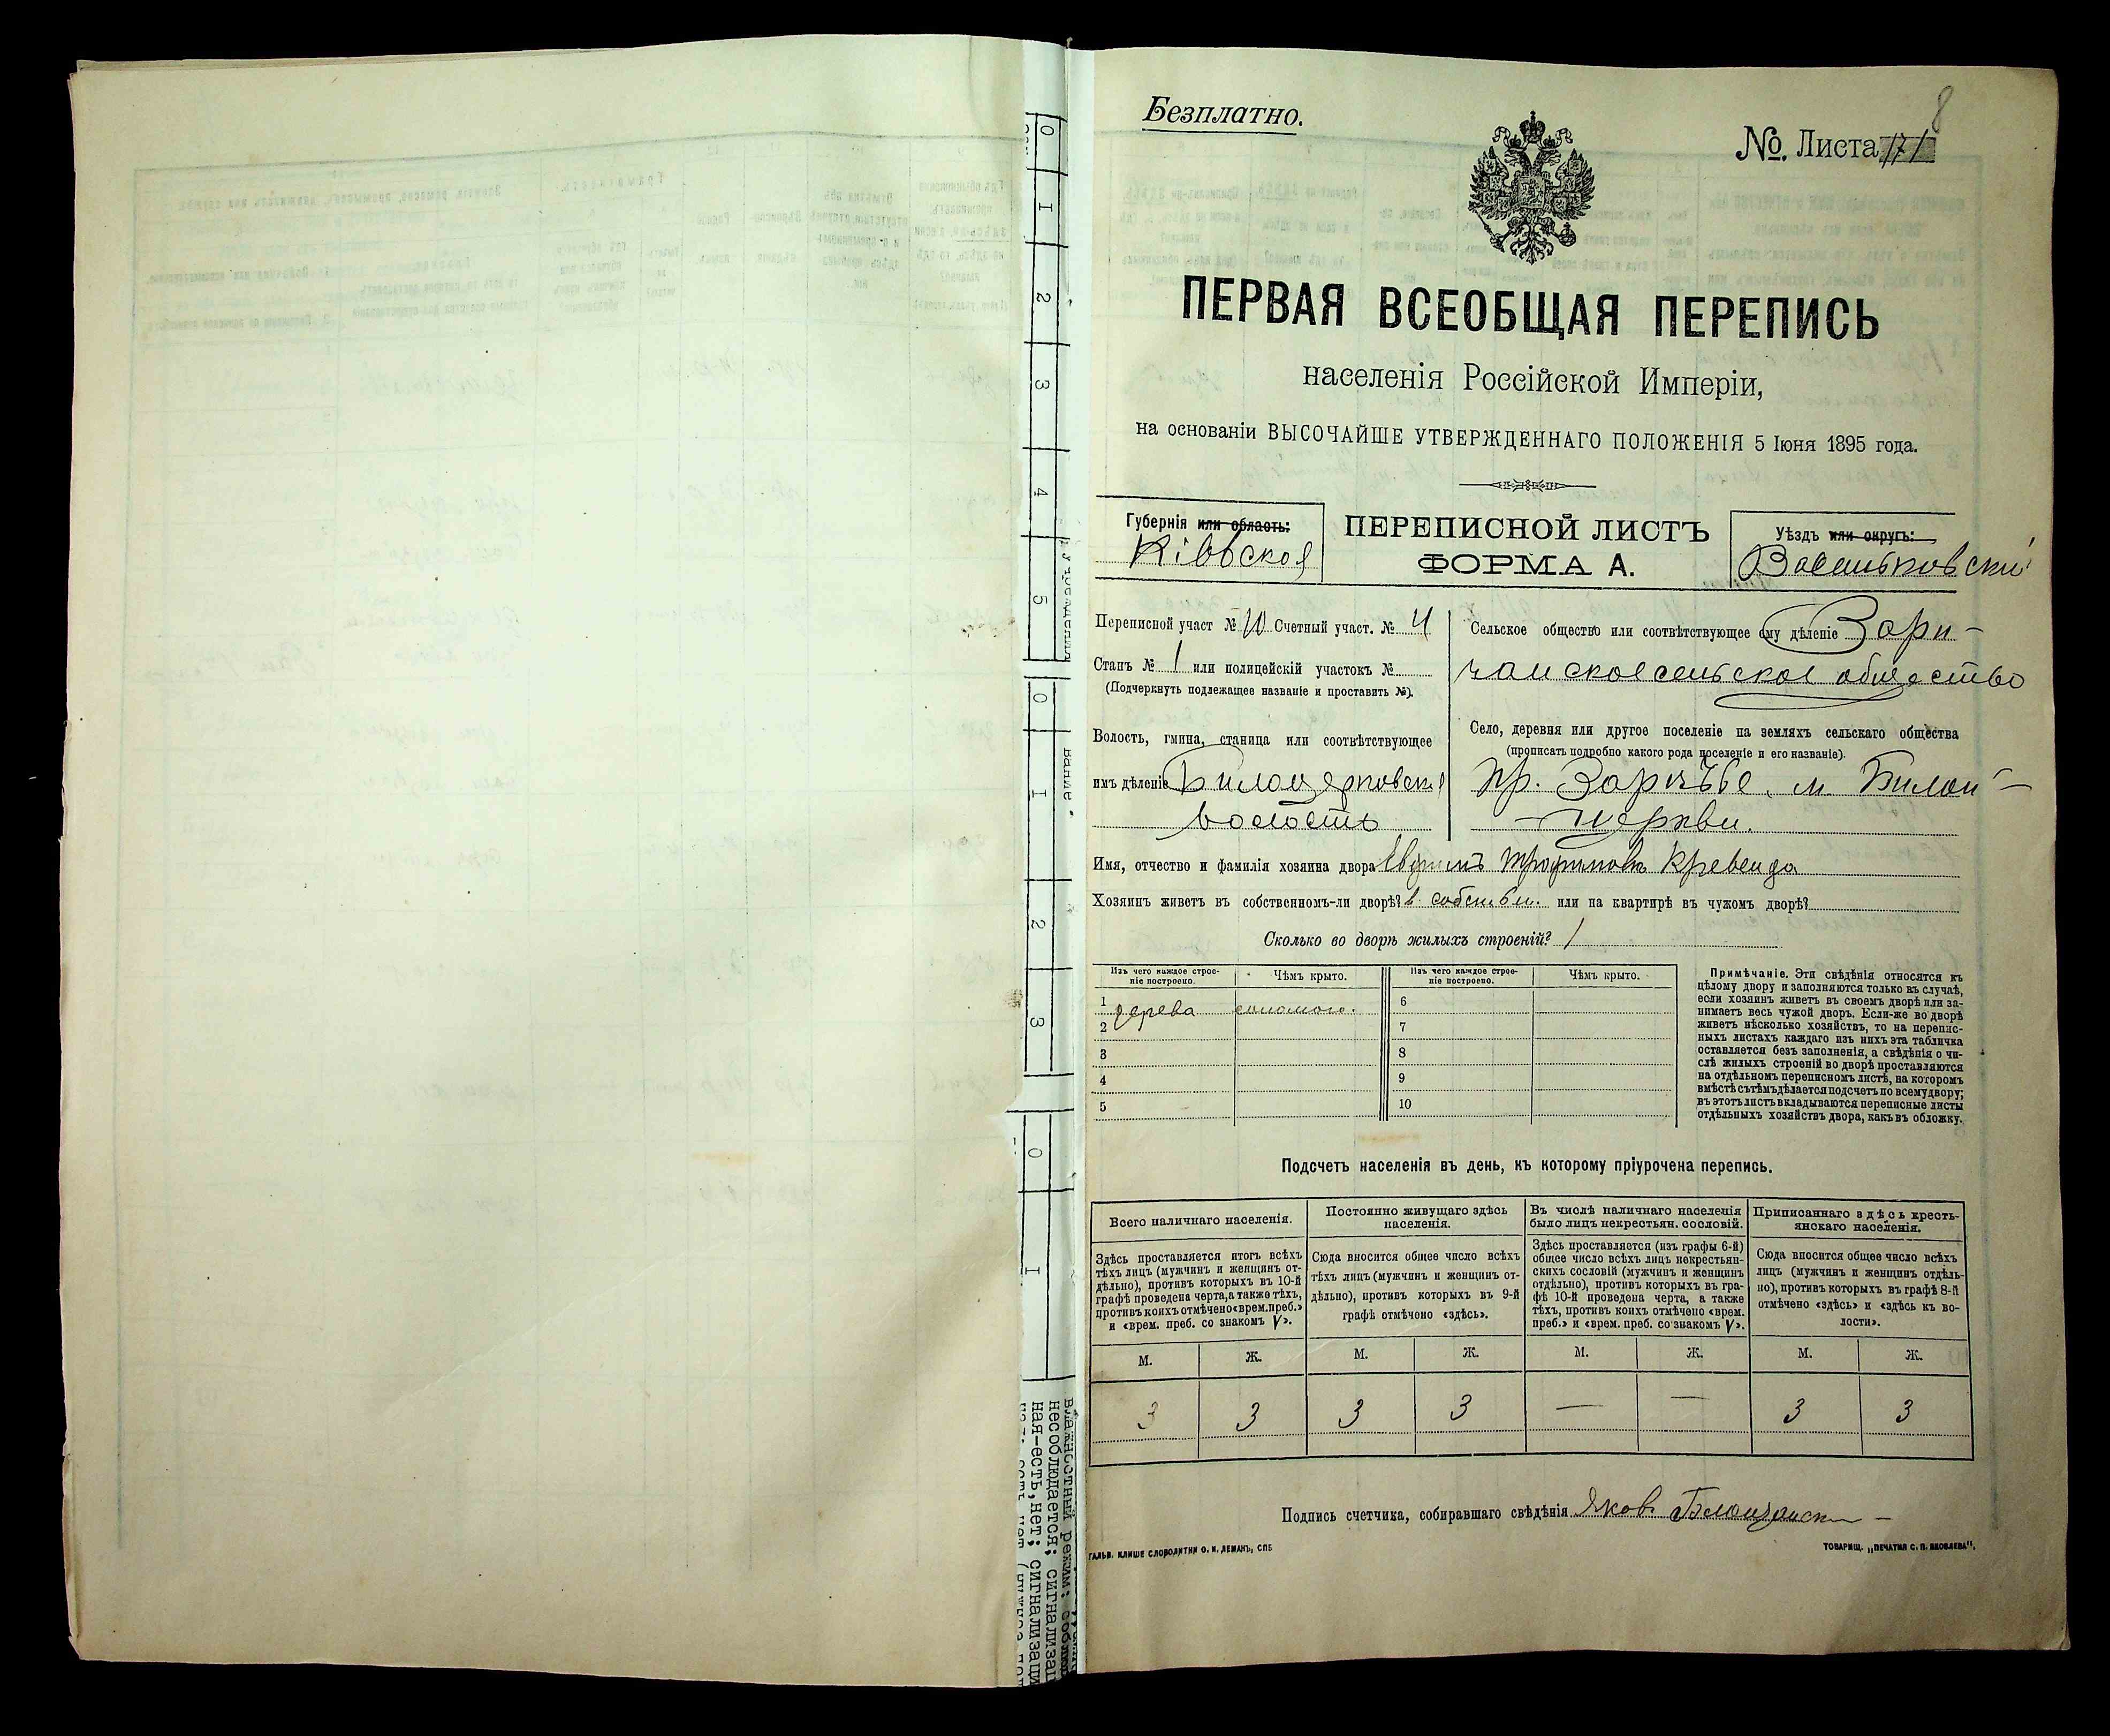 8
Безплатно.
№. Листа 171
ПЕРВАЯ ВСЕОБЩАЯ ПЕРЕПИСЬ
населенія Россійской Имперіи,
на основаніи ВЫСОЧАЙШЕ УТВЕРЖДЕННАГО ПОЛОЖЕНІЯ 5 Іюня 1895 года.
Губернія или область:
Кіевская
ПЕРЕПИСНОЙ ЛИСТЪ
ФОРМА А.
Уѣздъ или округъ:
Васильковскій
Переписной участ № 10 Счетный участ. № 4
Станъ № 1 или полицейскій участокъ №
(Подчеркнуть подлежащее названіе и проставить №).
Волость, гмина, станица или соотвѣтствующее
имъ дѣленіе Билоцерковская
волость
Сельское общество или соотвѣтствующее ему дѣленіе Зари-
чанское сельское общество
Село, деревня или другое поселеніе на земляхъ сельскаго общества
(прописать подробно какого рода поселеніе и его названіе).
пр. Заречье м. Билой-
церкви.
Имя, отчество и фамилія хозяина двора Трофимовъ
Хозяинъ живетъ въ собственномъ-ли дворѣ? в собствен. или на квартирѣ въ чужомъ дворѣ?
Сколько во дворѣ жилыхъ строеній? 1
Изъ чего каждое строе-
ніе построено.
Чѣмъ крыто.
Изъ чего каждое строе-
ніе построено.
Чѣмъ крыто.
1 дерева соломою. 6
2 7
3 8
4 9
5 10
Примѣчаніе. Эти свѣдѣнія относятся къ
цѣлому двору и заполняются только въ случаѣ,
если хозяинъ живетъ въ своемъ дворѣ или за-
нимаетъ весь чужой дворъ. Если-же во дворѣ
живетъ нѣсколько хозяйствъ, то на перепис-
ныхъ листахъ каждаго изъ нихъ эта табличка
оставляется безъ заполненія, а свѣдѣнія о чи-
слѣ жилыхъ строеній во дворѣ проставляются
на отдѣльномъ переписномъ листѣ, на которомъ
вмѣстѣ съ тѣмъ дѣлается подсчетъ по всему двору;
въ этотъ листъ вкладываются переписные листы
отдѣльныхъ хозяйствъ двора, какъ въ обложку.
Подсчетъ населенія въ день, къ которому пріурочена перепись.
Всего наличнаго населенія.
Здѣсь проставляется итогъ всѣхъ
тѣхъ лицъ (мужчинъ и женщинъ от-
дѣльно), противъ которыхъ въ 10-й
графѣ проведена черта, а также тѣхъ,
противъ коихъ отмѣчено «врем. преб.»
и «врем. преб. со знакомъ V».
Постоянно живущаго здѣсь
населенія.
Сюда вносится общее число всѣхъ
тѣхъ лицъ (мужчинъ и женщинъ от-
дѣльно), противъ которыхъ въ 9-й
графѣ отмѣчено «здѣсь».
Въ числѣ наличнаго населенія
было лицъ некрестьян. сословій.
Здѣсь проставляется (изъ графы 6-й)
общее число всѣхъ лицъ некрестьян-
скихъ сословій (мужчинъ и женщинъ
отдѣльно), противъ которыхъ въ гра-
фѣ 10-й проведена черта, а также
тѣхъ, противъ коихъ отмѣчено «врем.
преб.» и «врем. преб. со знакомъ V».
Приписаннаго здѣсь кресть-
янскаго населенія.
Сюда вносится общее число всѣхъ
лицъ (мужчинъ и женщинъ отдѣль-
но), противъ которыхъ въ графѣ 8-й
отмѣчено «здѣсь» и «здѣсь къ во-
лости».
М. Ж. М. Ж. М. Ж. М. Ж.
3 3 3 3 — — 3 3
Подпись счетчика, собиравшаго свѣдѣнія Яков
ГАЛЬВ. КЛИШЕ СЛОВОЛИТНИ О. И. ЛЕМАНЪ, СПБ
ТОВАРИЩ. „ПЕЧАТНЯ С. П. ЯКОВЛЕВА“.
0 1 2 3 4 5
0 1 2 3
0 1
вание.
влажностный режим:
несоблюдается; сигнализац
ная-есть, нет; сигнализаци